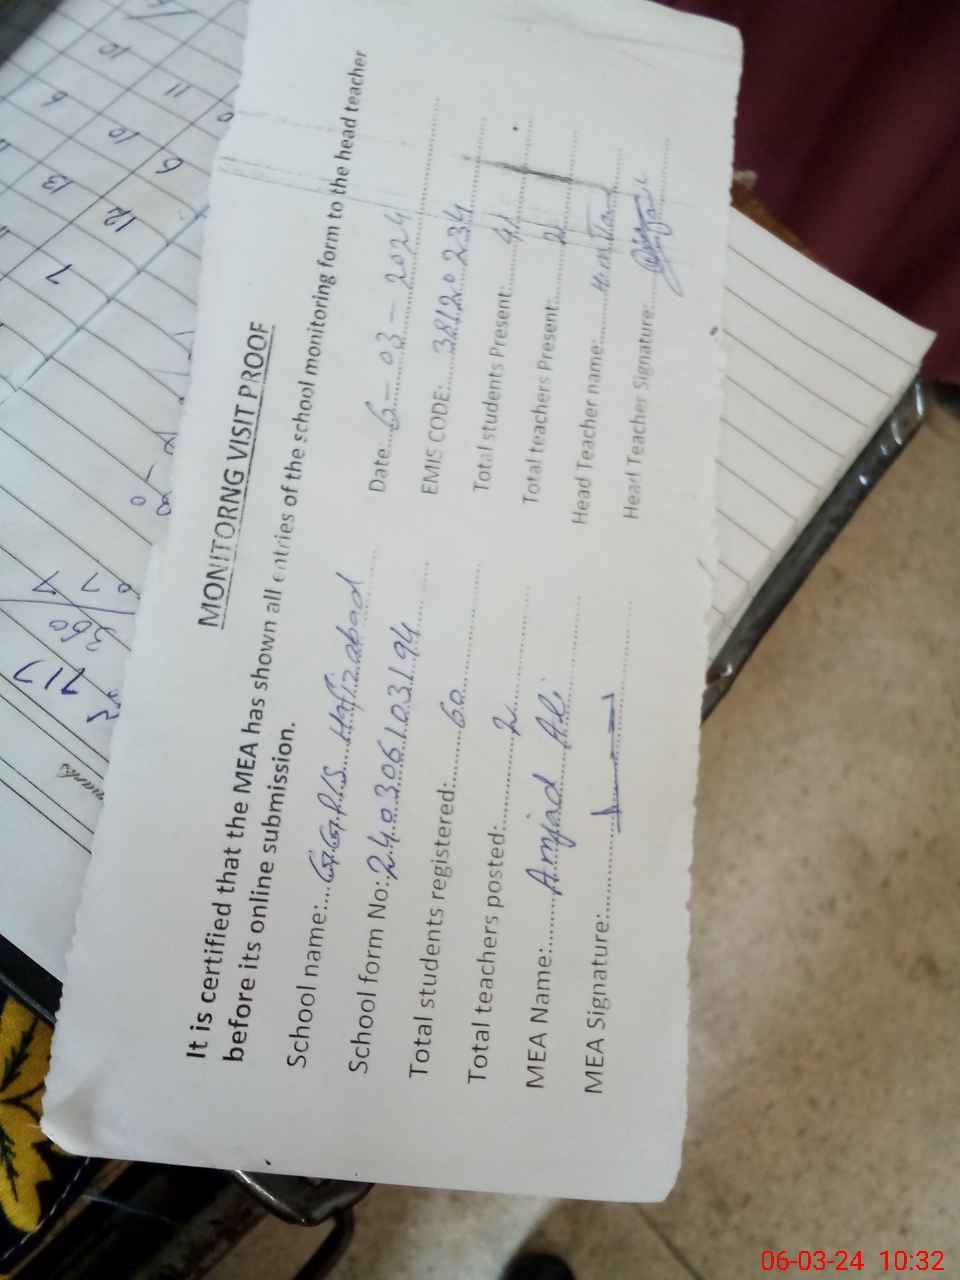 MONITORNG VISIT PROOF
It is certified that the MEA has shown all entries of the school monitoring form to the head teacher
before its online submission.
School name: GGPS Hafizabad Date: 6-03-2024
School form No: 240306103194 EMIS CODE: 38120234
Total students registered: 60 Total students Present: 41
Total teachers posted: 2 Total teachers Present: 2
MEA Name: Amjad Ali Head Teacher name:
MEA Signature: Head Teacher Signature:
06-03-24 10:32